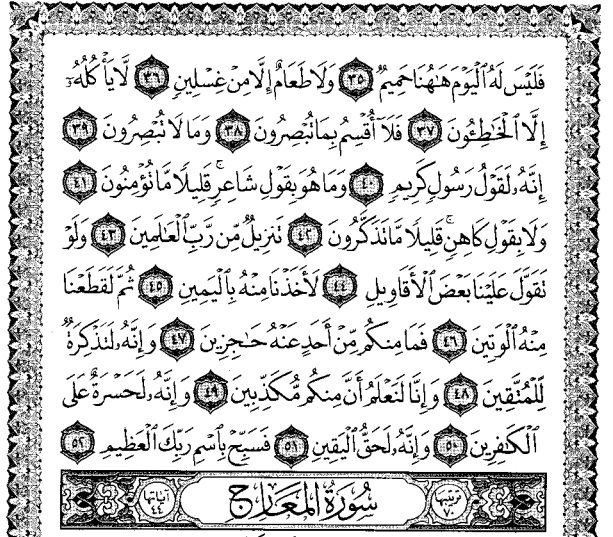 فَلَيْسَ لَهُ ٱلْيَوْمَ هَٰهُنَا حَمِيمٌ ٣٥ وَلَا طَعَامٌ إِلَّا مِنْ غِسْلِينٍ ٣٦ لَّا يَأْكُلُهُۥٓ
إِلَّا ٱلْخَٰطِـُٔونَ ٣٧ فَلَآ أُقْسِمُ بِمَا تُبْصِرُونَ ٣٨ وَمَا لَا تُبْصِرُونَ ٣٩
إِنَّهُۥ لَقَوْلُ رَسُولٍ كَرِيمٍ ٤٠ وَمَا هُوَ بِقَوْلِ شَاعِرٍ ۚ قَلِيلًا مَّا تُؤْمِنُونَ ٤١
وَلَا بِقَوْلِ كَاهِنٍ ۚ قَلِيلًا مَّا تَذَكَّرُونَ ٤٢ تَنزِيلٌ مِّن رَّبِّ ٱلْعَٰلَمِينَ ٤٣ وَلَوْ
تَقَوَّلَ عَلَيْنَا بَعْضَ ٱلْأَقَاوِيلِ ٤٤ لَأَخَذْنَا مِنْهُ بِٱلْيَمِينِ ٤٥ ثُمَّ لَقَطَعْنَا
مِنْهُ ٱلْوَتِينَ ٤٦ فَمَا مِنكُم مِّنْ أَحَدٍ عَنْهُ حَٰجِزِينَ ٤٧ وَإِنَّهُۥ لَتَذْكِرَةٌ
لِّلْمُتَّقِينَ ٤٨ وَإِنَّا لَنَعْلَمُ أَنَّ مِنكُم مُّكَذِّبِينَ ٤٩ وَإِنَّهُۥ لَحَسْرَةٌ عَلَى
ٱلْكَٰفِرِينَ ٥٠ وَإِنَّهُۥ لَحَقُّ ٱلْيَقِينِ ٥١ فَسَبِّحْ بِٱسْمِ رَبِّكَ ٱلْعَظِيمِ ٥٢
ترتيبها ٧٠ سُورَةُ المَعَارِج آياتها ٤٤